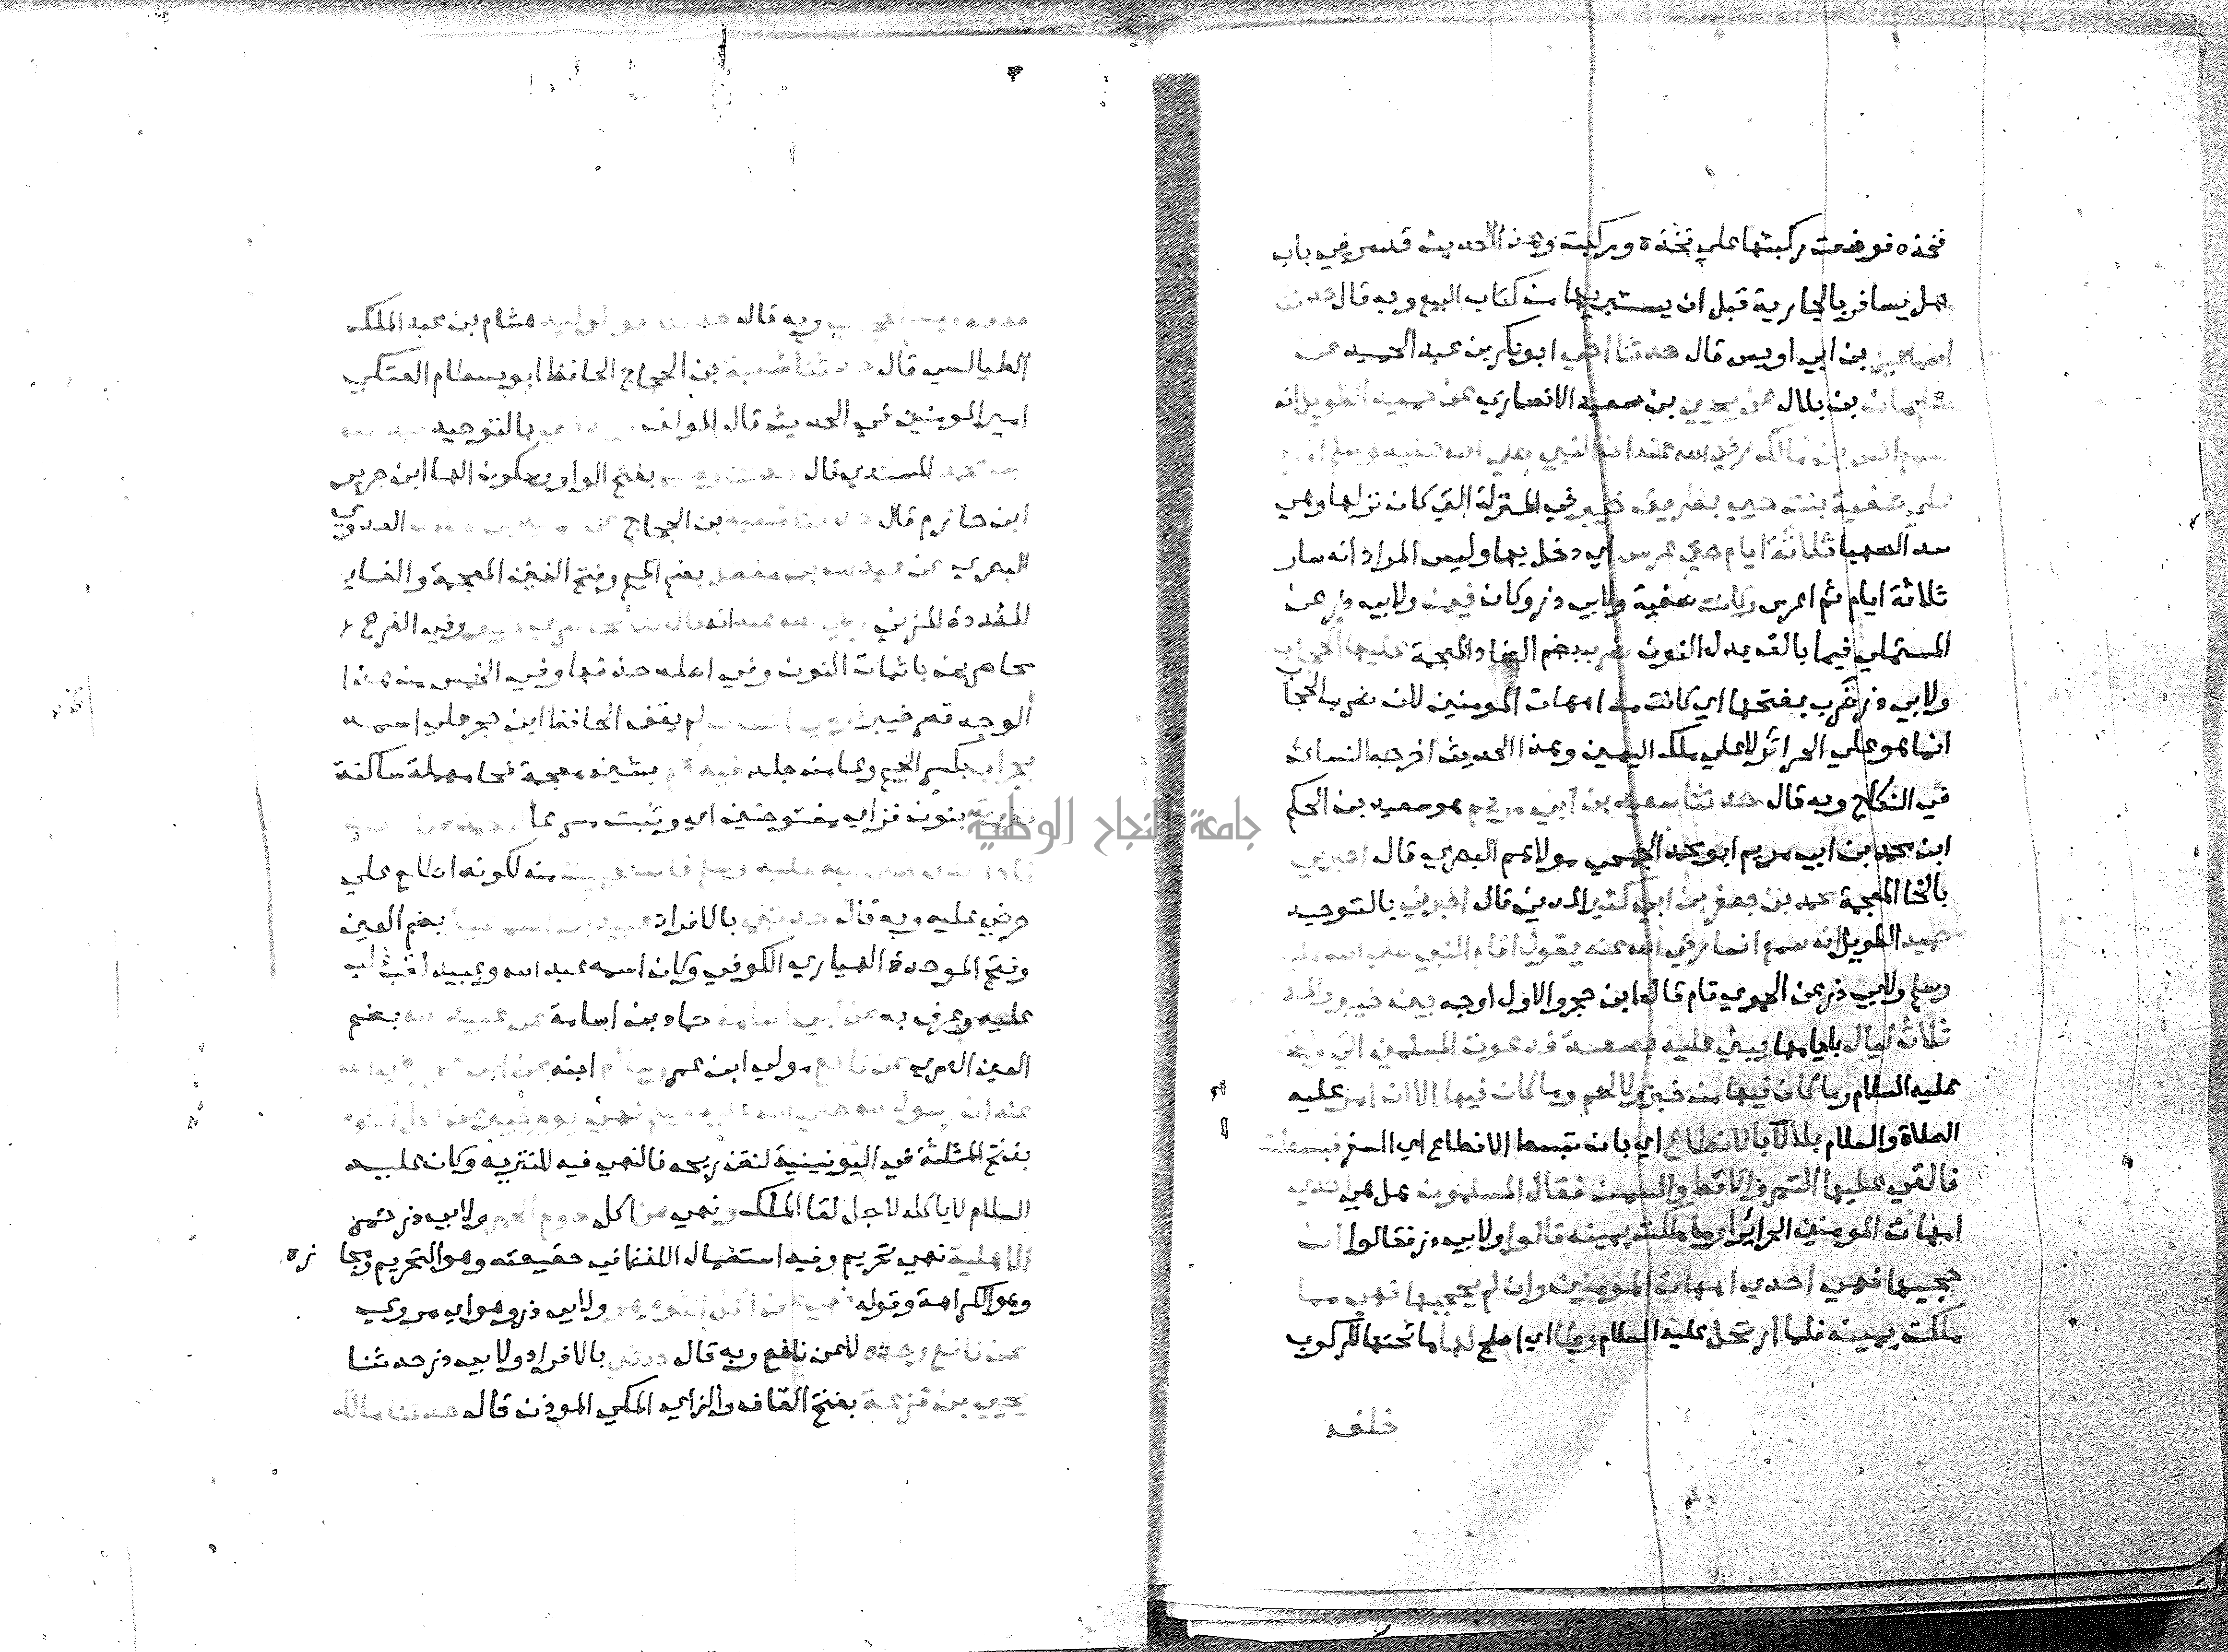 فخذه فوضعت ركبتها علي فخذه وركبت وهذا الحديث قد مر في باب
هل يسافر بالجارية قبل ان يستبريها من كتاب البيع وبه قال حدثنا
اسماعيل بن ابي اويس قال حدثنا اخي ابو بكر بن عبد الحميد عن
سليمان بن بلال عن يحيي بن سعيد الانصاري عن حميد الطويل انه
سمع انس بن مالك رضي الله عنه ان النبي صلي الله عليه وسلم اقام
علي صفية بنت حيي بطريق خيبر في المنزلة التي كان نزلها وهي
سد الصهبا ثلاثة ايام حتي عرس اي دخل بها وليس المراد انه سار
ثلاثة ايام ثم اعرس وكانت صفية ولابي ذر وكان فيمن ولابي ذر عن
المستملي فيما بالف بدل النون ضرب بضم الضاد المعجمة عليها الحجاب
ولابي ذر ضرب بفتحها اي كانت من امهات المومنين لان ضرب الحجاب
انما هو علي الحرائر لا علي ملك اليمين وهذا الحديث اخرجه النسائ
في النكاح وبه قال حدثنا سعيد بن ابي مريم هو سعيد بن الحكم
ابن محمد بن ابي مريم ابو محمد الجمحي مولاهم البصري قال اخبرني
بالخا المعجمة محمد بن جعفر بن ابي كثير المدني قال اخبرني بالتوحيد
حميد الطويل انه سمع انسا رضي الله عنه يقول اقام النبي صلي الله عليه
وسلم ولابي ذر عن الحموي قام قال ابن حجر والاول اوجه بين خيبر والمد
ثلاث ليال بايامها يبني عليه بصفية فدعوت المسلمين الي وليمته
عليه السلام وما كان فيها من خبز ولا لحم وما كان فيها الا ان امر عليه
الصلاة والسلام بلالا بالانطاع اي بان تبسط الانطاع اي السفر فبسطت
فالقي عليها التمر والاقط والسمن فقال المسلمون هل هي احدي
امهات المومنين الحرائر او ما ملكت يمينه قالوا ولابي ذر فقالوا ان
حجبها فهي احدي امهات المومنين وان لم يحجبها فهي مما
ملكت يمينه فلما ارتحل عليه السلام وطا اي اصلح لها ما تحتها للركوب
خلفه
وبه قال حدثنا ابو الوليد هشام بن عبد الملك
الطيالسي قال حدثنا شعبة بن الحجاج الحافظ ابو بسطام العتكي
امير المومنين في الحديث قال المولف بالتوحيد
محمد المسندي قال حدثنا وهب بفتح الواو وسكون الها ابن جرير
ابن حازم قال حدثنا شعبة بن الحجاج عن حميد بن هلال العدوي
البصري عن عبد الله بن مغفل بضم الميم وفتح الغين المعجمة والفا
المشددة المزني رضي الله عنه انه قال كنا محاصري خيبر وفي الفرع
محاصرين باثبات النون وفي اصله حذفها وفي الخمس من هذا
الوجه قصر خيبر فرمي انسان لم يقف الحافظ ابن حجر علي اسمه
بجراب بكسر الجيم وعا من جلد فيه شحم بشين معجمة فحا مهملة ساكنة
بنون فزاي مفتوحتين اي وثبت مسرعا
عليه وسلم فاستحييت منه لكونه اطلع علي
حرصي عليه وبه قال حدثني بالافراد عبيد بن اسماعيل بضم العين
وفتح الموحدة الهباري الكوفي وكان اسمه عبد الله وعبيد لقب غلب
عليه وعرف به عن ابي اسامة حماد بن اسامة عن عبيد الله بضم
العين العمري عن نافع مولي ابن عمر وسالم ابنه عن ابن عمر رضي الله
عنه ان رسول الله صلي الله عليه وسلم نهي يوم خيبر عن اكل الثوم
بفتح المثلثة في اليونينية لنتن ريحه فالنهي فيه للتنزيه وكان عليه
السلام لا ياكله لاجل لقا الملك ونهي عن اكل لحوم الحمر ولابي ذر حمر
الاهلية نهي تحريم وفيه استعمال اللفظ في حقيقته وهو التحريم ومجا زه
وهو الكراهة وقوله نهي عن اكل الثوم هو ولابي ذر وهو اي مروي
عن نافع وحده لا عن نافع وبه قال حدثني بالافراد ولابي ذر حدثنا
يحيي بن قزعة بفتح القاف والزاي المكي الموذن قال حدثنا مالك
جامعة النجاح الوطنية